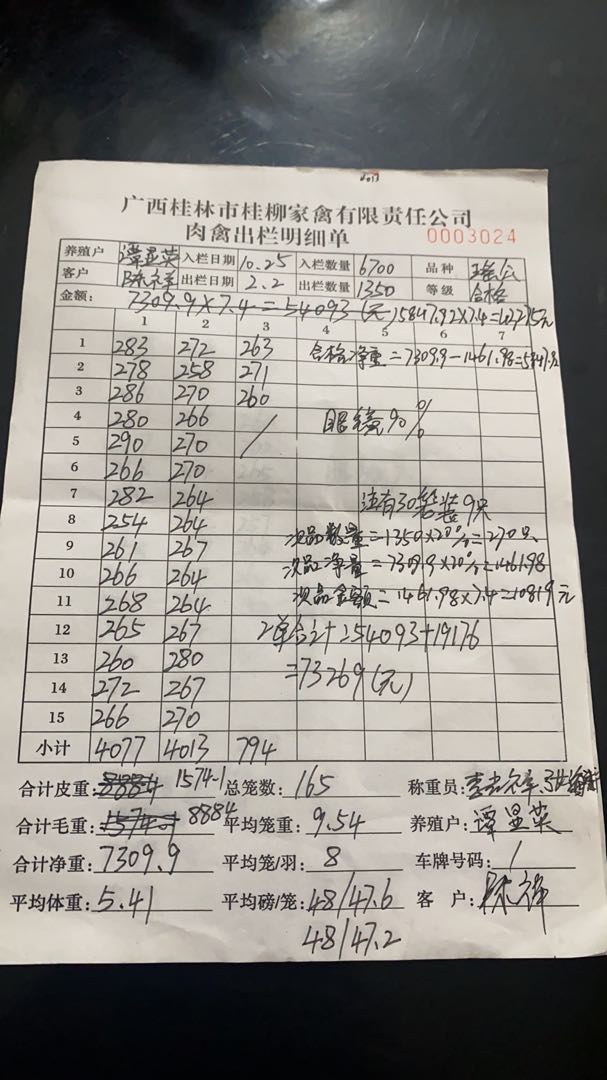 广西桂林市桂柳家禽有限责任公司
肉禽出栏明细单 0003024
养殖户 谭显英 入栏日期 10.25 入栏数量 6700 品种
客户 陈祥 出栏日期 2.2 出栏数量 1350 等级 合格
金额: 7309.9×7.4=54093(元)
1 2 3 4 5 6 7
1 283 272 263 合格净重=7309.9-1461.98=5847.92
2 278 258 271
3 286 270 260
4 280 266 眼镜90%
5 290 270
6 266 270
7 282 264 注有30笼装9只
8 254 264 次品数量=1350×20%=270只
9 261 267 次品净重=7309.9×20%=1461.98
10 266 264 次品金额=1461.98×7.4=10819元
11 268 264
12 265 267 2单合计:54093+19176
13 260 280 =73269(元)
14 272 267
15 266 270
小计 4077 4013 794
合计皮重: 1574.1 总笼数: 165 称重员:
合计毛重: 8884 平均笼重: 9.54 养殖户: 谭显英
合计净重: 7309.9 平均笼/羽: 8 车牌号码: /
平均体重: 5.41 平均磅/笼: 48/47.6 客户: 陈祥
48/47.2